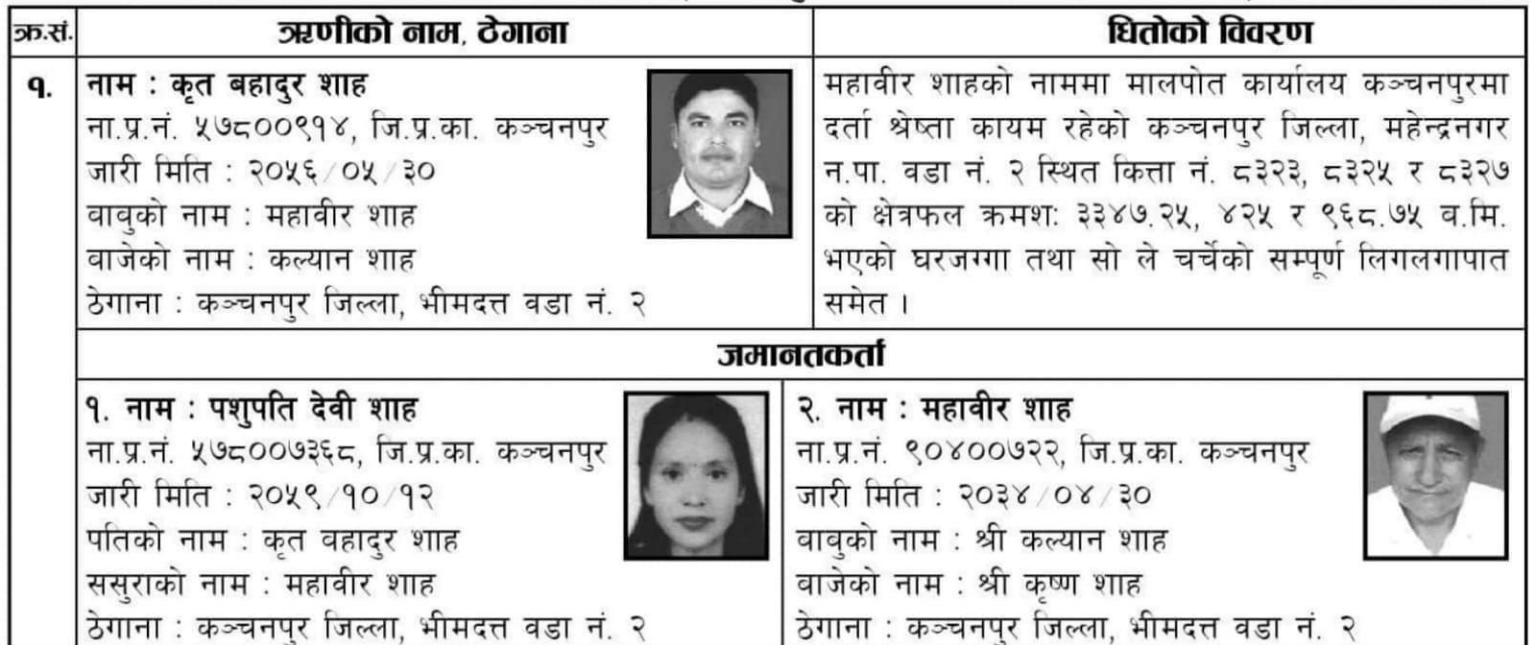 क्र.सं.
ऋणीको नाम, ठेगाना
धितोको विवरण
१.
नाम : कृत बहादुर शाह
ना.प्र.नं. ५७८००९१४, जि.प्र.का. कञ्चनपुर
जारी मिति : २०५६/०५/३०
बाबुको नाम : महावीर शाह
बाजेको नाम : कल्यान शाह
ठेगाना : कञ्चनपुर जिल्ला, भीमदत्त वडा नं. २
महावीर शाहको नाममा मालपोत कार्यालय कञ्चनपुरमा
दर्ता श्रेष्ता कायम रहेको कञ्चनपुर जिल्ला, महेन्द्रनगर
न.पा. वडा नं. २ स्थित कित्ता नं. ८३२३, ८३२५ र ८३२७
को क्षेत्रफल क्रमश: ३३४७.२५, ४२५ र ९६८.७५ व.मि.
भएको घरजग्गा तथा सो ले चर्चेको सम्पूर्ण लिगलगापात
समेत ।
जमानतकर्ता
१. नाम : पशुपति देवी शाह
ना.प्र.नं. ५७८००७३६८, जि.प्र.का. कञ्चनपुर
जारी मिति : २०५९/१०/१२
पतिको नाम : कृत बहादुर शाह
ससुराको नाम : महावीर शाह
ठेगाना : कञ्चनपुर जिल्ला, भीमदत्त वडा नं. २
२. नाम : महावीर शाह
ना.प्र.नं. ९०४००७२२, जि.प्र.का. कञ्चनपुर
जारी मिति : २०३४/०४/३०
बाबुको नाम : श्री कल्यान शाह
बाजेको नाम : श्री कृष्ण शाह
ठेगाना : कञ्चनपुर जिल्ला, भीमदत्त वडा नं. २